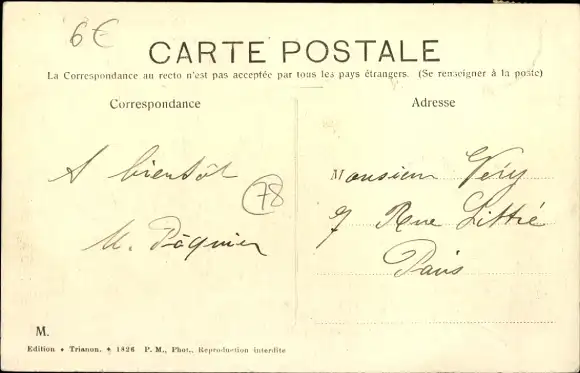 6€
CARTE POSTALE
La Correspondance au recto n'est pas acceptée par tous les pays étrangers. (Se renseigner à la poste)
Correspondance
Adresse
A bientôt
78
M. Pâquier
Monsieur Véry
7 Rue Littré
Paris
M.
Edition ♦ Trianon. ♦ 1826 P. M., Phot., Reproduction interdite